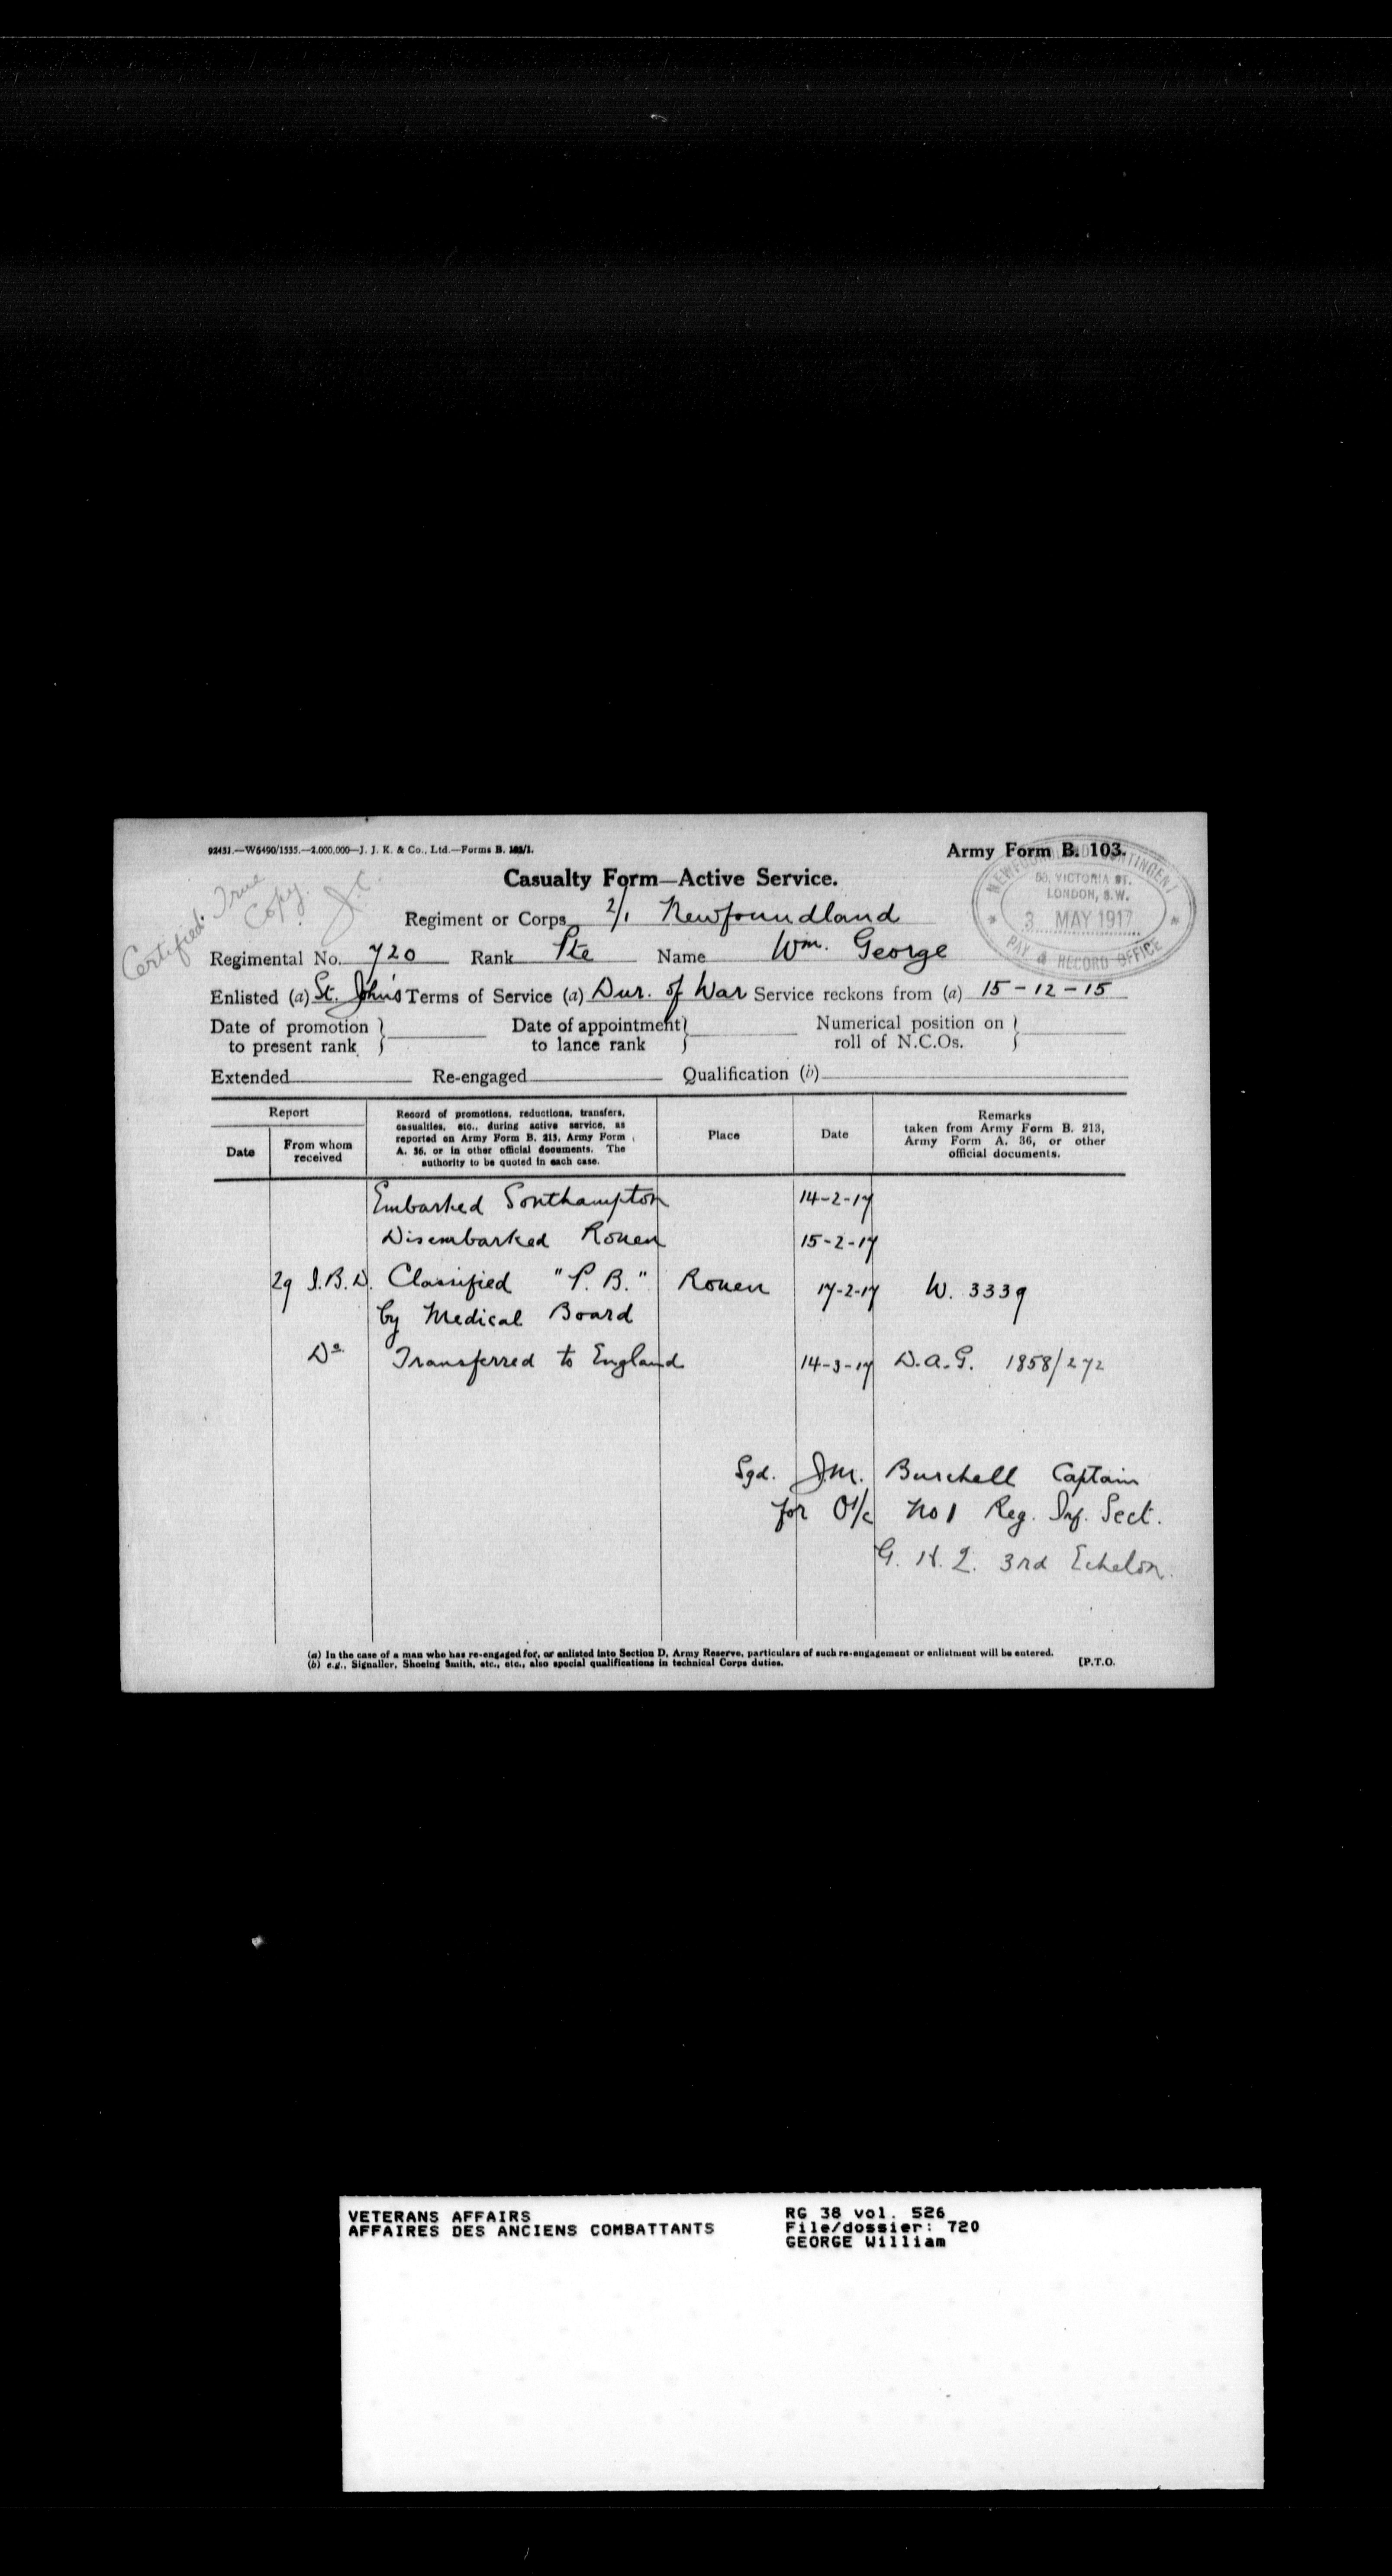 92431.—W6490/1535.—2,000,000—J. J. K. & Co., Ltd.—Forms B. 103/1.
Army Form B. 103.
Certified True
Copy.
J.C.
NEWFOUNDLAND CONTINGENT
58, VICTORIA ST.
LONDON, S.W.
3 MAY 1917
PAY & RECORD OFFICE
Casualty Form—Active Service.
Regiment or Corps 2/1 Newfoundland
Regimental No. 720 Rank Pte Name Wm. George
Enlisted (a) St. John's Terms of Service (a) Dur. of War Service reckons from (a) 15-12-15
Date of promotion to present rank } Date of appointment to lance rank } Numerical position on roll of N.C.Os. }
Extended Re-engaged Qualification (b)
Report
Date
From whom received
Record of promotions, reductions, transfers, casualties, etc., during active service, as reported on Army Form B. 213, Army Form A. 36, or in other official documents. The authority to be quoted in each case.
Place
Date
Remarks
taken from Army Form B. 213, Army Form A. 36, or other official documents.
Embarked Southampton 14-2-17
Disembarked Rouen 15-2-17
29 I.B.D. Classified "P.B." Rouen 17-2-17 W. 3339
by Medical Board
Do Transferred to England 14-3-17 D.A.G. 1858/272
Sgd. J.M. Burchell Captain
for O/c No 1 Reg. Inf. Sect.
G.H.Q. 3rd Echelon.
(a) In the case of a man who has re-engaged for, or enlisted into Section D, Army Reserve, particulars of such re-engagement or enlistment will be entered.
(b) e.g., Signaller, Shoeing Smith, etc., etc., also special qualifications in technical Corps duties.
[P.T.O.
VETERANS AFFAIRS
AFFAIRES DES ANCIENS COMBATTANTS
RG 38 vol. 526
File/dossier: 720
GEORGE William